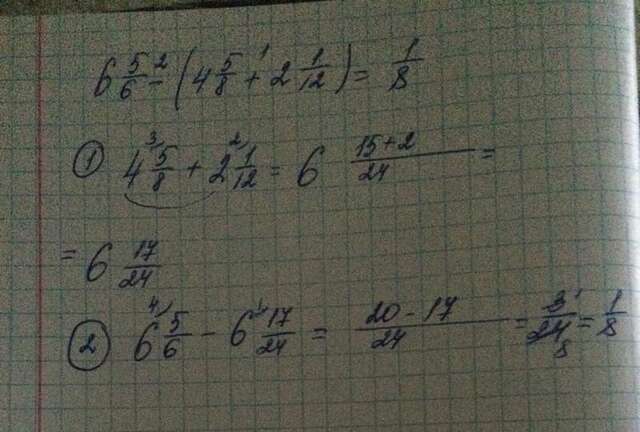 6 5/6 - (4 5/8 + 2 1/12) = 1/8
① 4 5/8 + 2 1/12 = 6 (15+2)/24 =
= 6 17/24
② 6 5/6 - 6 17/24 = (20-17)/24 = 3/24 = 1/8